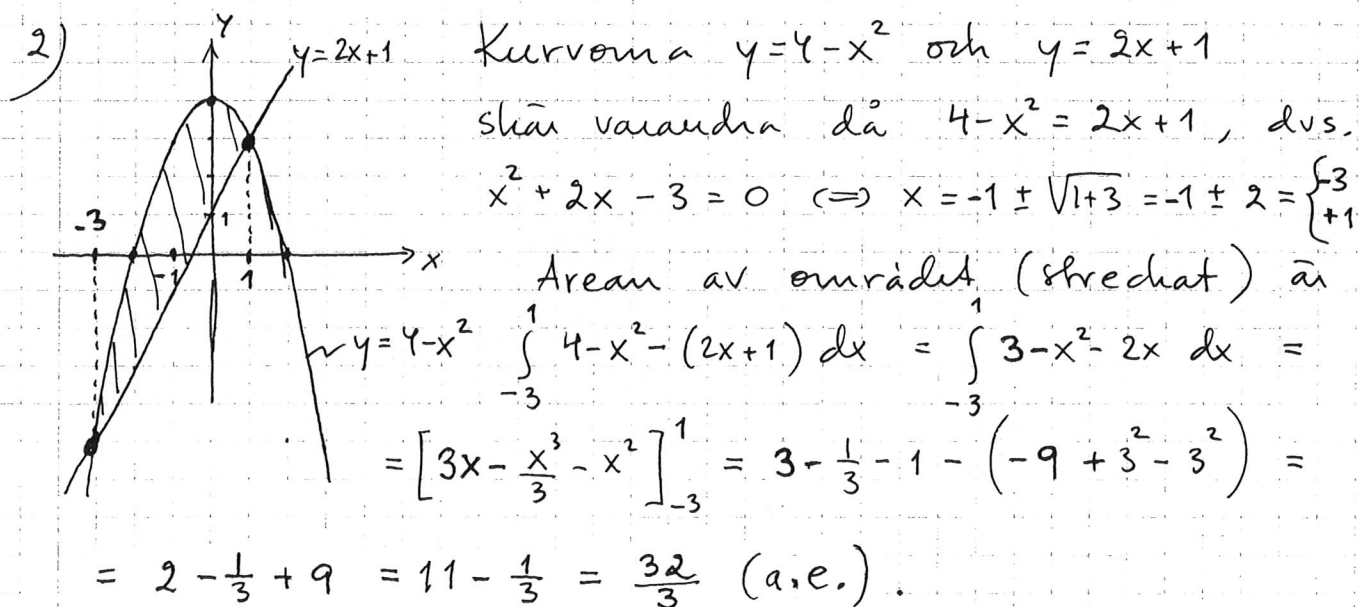 2)
y
y=2x+1
-3
-1
1
1
x
y=4-x²
Kurvorna y=4-x² och y=2x+1
skär varandra då 4-x² = 2x+1, dvs.
x²+2x-3=0 <=> x=-1±√(1+3) =-1±2={-3 +1
Arean av området (streckat) är
∫_{-3}^{1} 4-x²-(2x+1) dx = ∫_{-3}^{1} 3-x²-2x dx =
= [3x - x³/3 - x²]_{-3}^{1} = 3 - 1/3 - 1 - (-9+3²-3²) =
= 2 - 1/3 + 9 = 11 - 1/3 = 32/3 (a.e.).